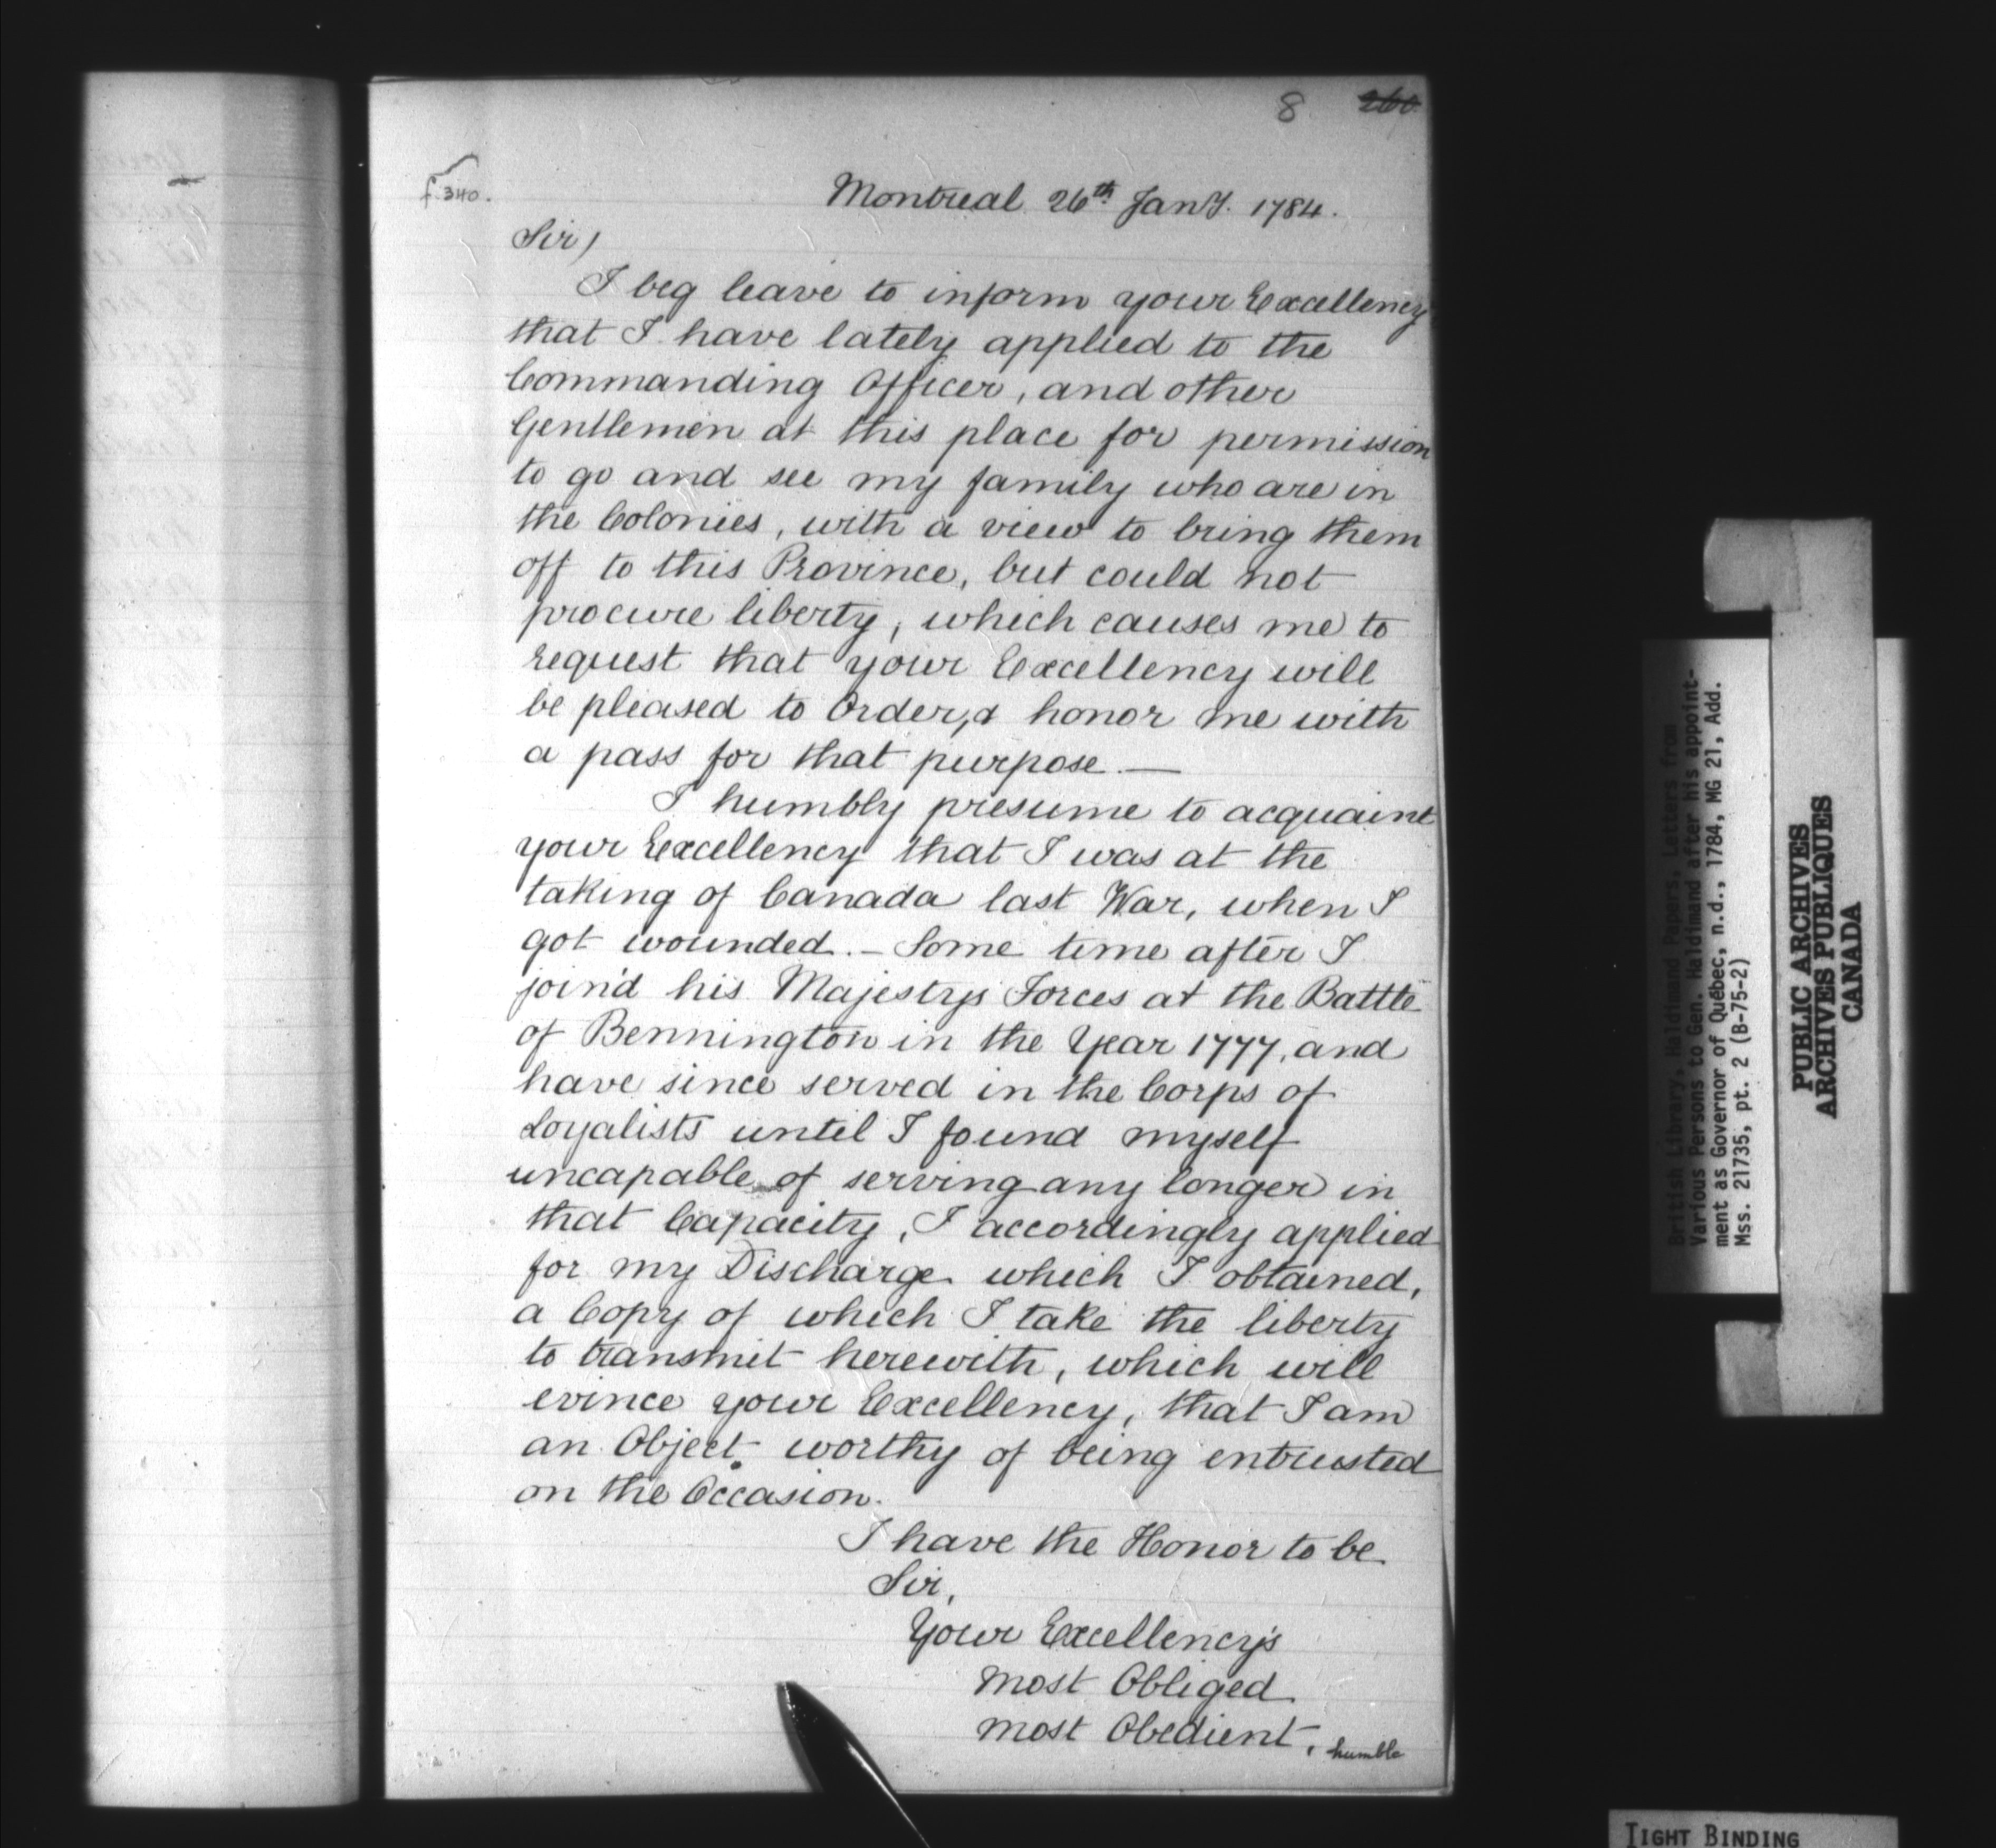 8 260
f. 340.
Montreal 26th Jany. 1784.
Sir,
I beg leave to inform your Excellency
that I have lately applied to the
Commanding Officer, and other
Gentlemen at this place for permission
to go and see my family who are in
the Colonies, with a view to bring them
off to this Province, but could not
procure liberty, which causes me to
request that your Excellency will
be pleased to Order, & honor me with
a pass for that purpose.—
I humbly presume to acquaint
your Excellency that I was at the
taking of Canada last War, when I
got wounded.— Some time after I
join'd his Majesty's Forces at the Battle
of Bennington in the Year 1777, and
have since served in the Corps of
Loyalists until I found myself
uncapable of serving any longer in
that Capacity, I accordingly applied
for my Discharge which I obtained,
a Copy of which I take the liberty
to transmit herewith, which will
evince your Excellency, that I am
an Object worthy of being entrusted
on the Occasion.
I have the Honor to be
Sir,
Your Excellency's
most Obliged
most Obedient, humble
British Library, Haldimand Papers, Letters from
Various Persons to Gen. Haldimand after his appoint-
ment as Governor of Québec, n.d., 1784, MG 21, Add.
Mss. 21735, pt. 2 (B-75-2)
PUBLIC ARCHIVES
ARCHIVES PUBLIQUES
CANADA
TIGHT BINDING